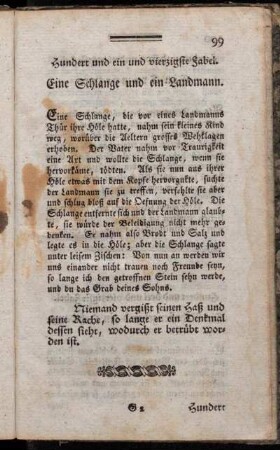 99
Hundert und ein und vierzigste Fabel.
Eine Schlange und ein Landmann.
Eine Schlange, die vor eines Landmanns
Thür ihre Höle hatte, nahm sein kleines Kind
weg, worüber die Aeltern grosses Wehklagen
erhoben. Der Vater nahm vor Traurigkeit
eine Axt und wollte die Schlange, wenn sie
hervorkäme, tödten. Als sie nun aus ihrer
Höle etwas mit dem Kopfe hervorgukte, suchte
der Landmann sie zu treffen, verfehlte sie aber
und schlug blos auf die Oefnung der Höle. Die
Schlange entfernte sich und der Landmann glaub-
te, sie würde der Beleidigung nicht mehr ge-
denken. Er nahm also Brodt und Salz und
legte es in die Höle; aber die Schlange sagte
unter leisem Zischen: Von nun an werden wir
uns einander nicht trauen noch Freunde seyn,
so lange ich den getroffnen Stein sehn werde,
und du das Grab deines Sohns.
Niemand vergißt seinen Haß und
seine Rache, so lange er ein Denkmal
dessen sieht, wodurch er betrübt wor-
den ist.
G 2 Hundert